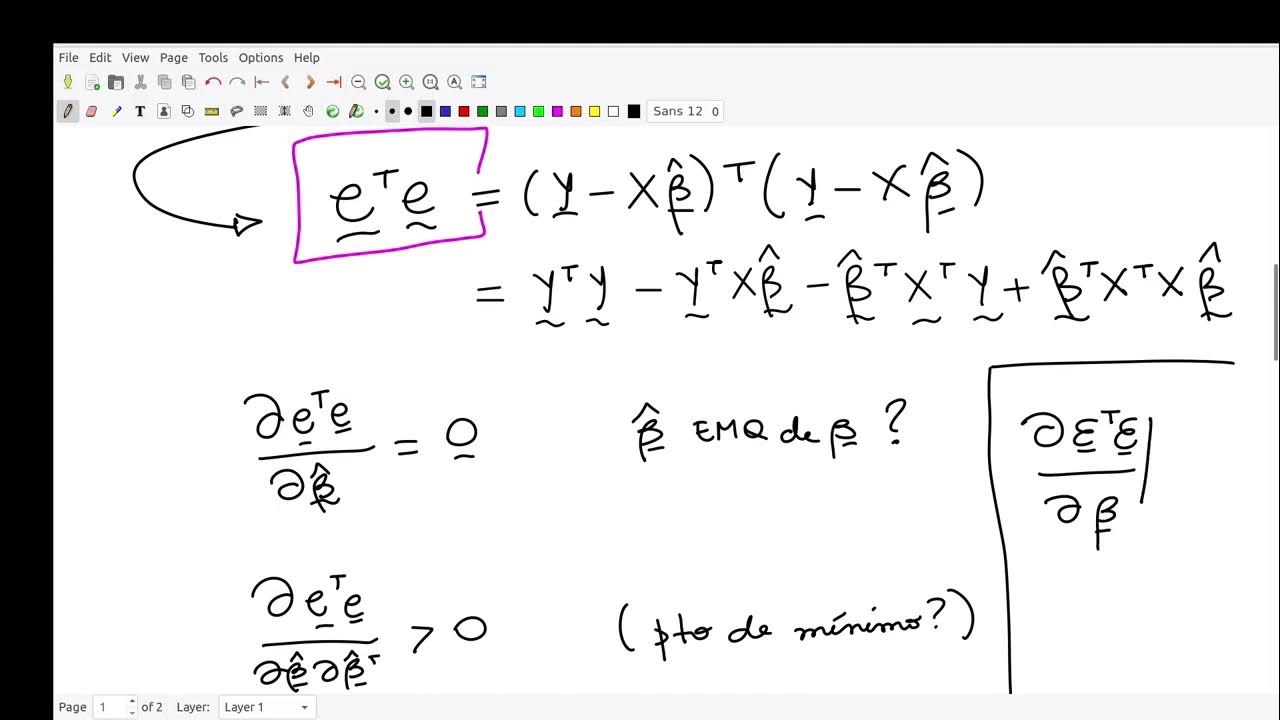 File Edit View Page Tools Options Help
T Sans 12 0
e^T e = (Y - Xβ̂)^T (Y - Xβ̂)
= Y^T Y - Y^T Xβ̂ - β̂^T X^T Y + β̂^T X^T X β̂
∂e^T e / ∂β̂ = 0
β̂ EMQ de β ?
∂ε^T ε / ∂β |
∂e^T e / ∂β̂ ∂β̂^T > 0
(pto de mínimo?)
Page 1 of 2 Layer: Layer 1